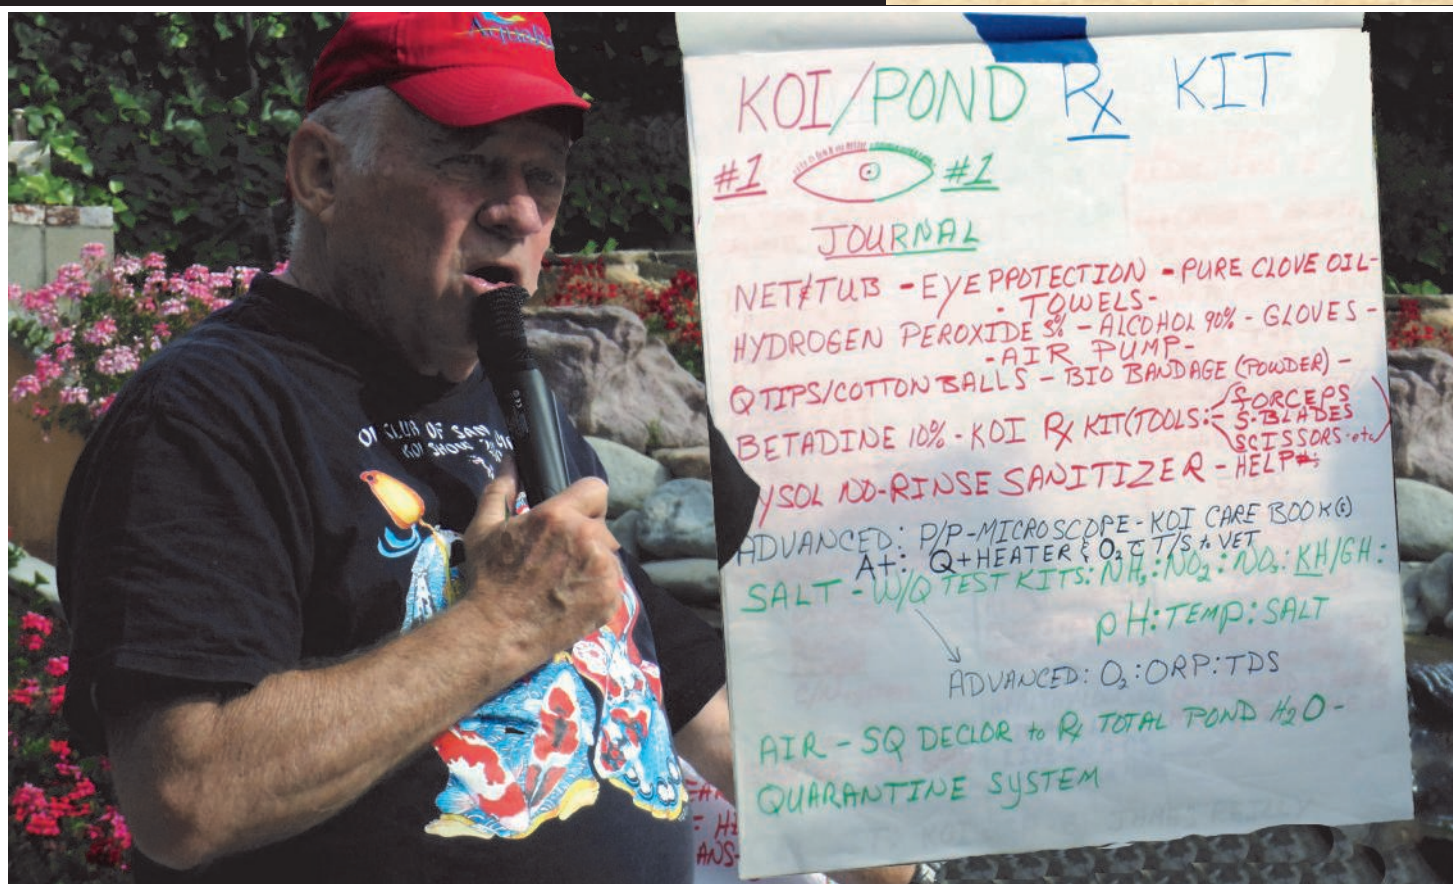 KOI/POND Rx KIT
#1 #1
JOURNAL
NET & TUB - EYE PROTECTION - PURE CLOVE OIL -
- TOWELS -
HYDROGEN PEROXIDE 3% - ALCOHOL 90% - GLOVES -
- AIR PUMP -
QTIPS/COTTON BALLS - BIO BANDAGE (POWDER) -
BETADINE 10% - KOI Rx KIT (TOOLS:
FORCEPS
S-BLADES
SCISSORS-etc)
YSOL NO-RINSE SANITIZER - HELP
ADVANCED: P/P-MICROSCOPE-KOI CARE BOOK(s)
A+: Q+HEATER & O₂ c̄ T/S to VET
SALT - W/Q TEST KITS: NH₃: NO₂: NO₃: KH/GH:
pH: TEMP: SALT
ADVANCED: O₂: ORP: TDS
AIR - SQ DECLOR to Rx TOTAL POND H₂O -
QUARANTINE SYSTEM
CLUB OF SAN
KOI SHOW